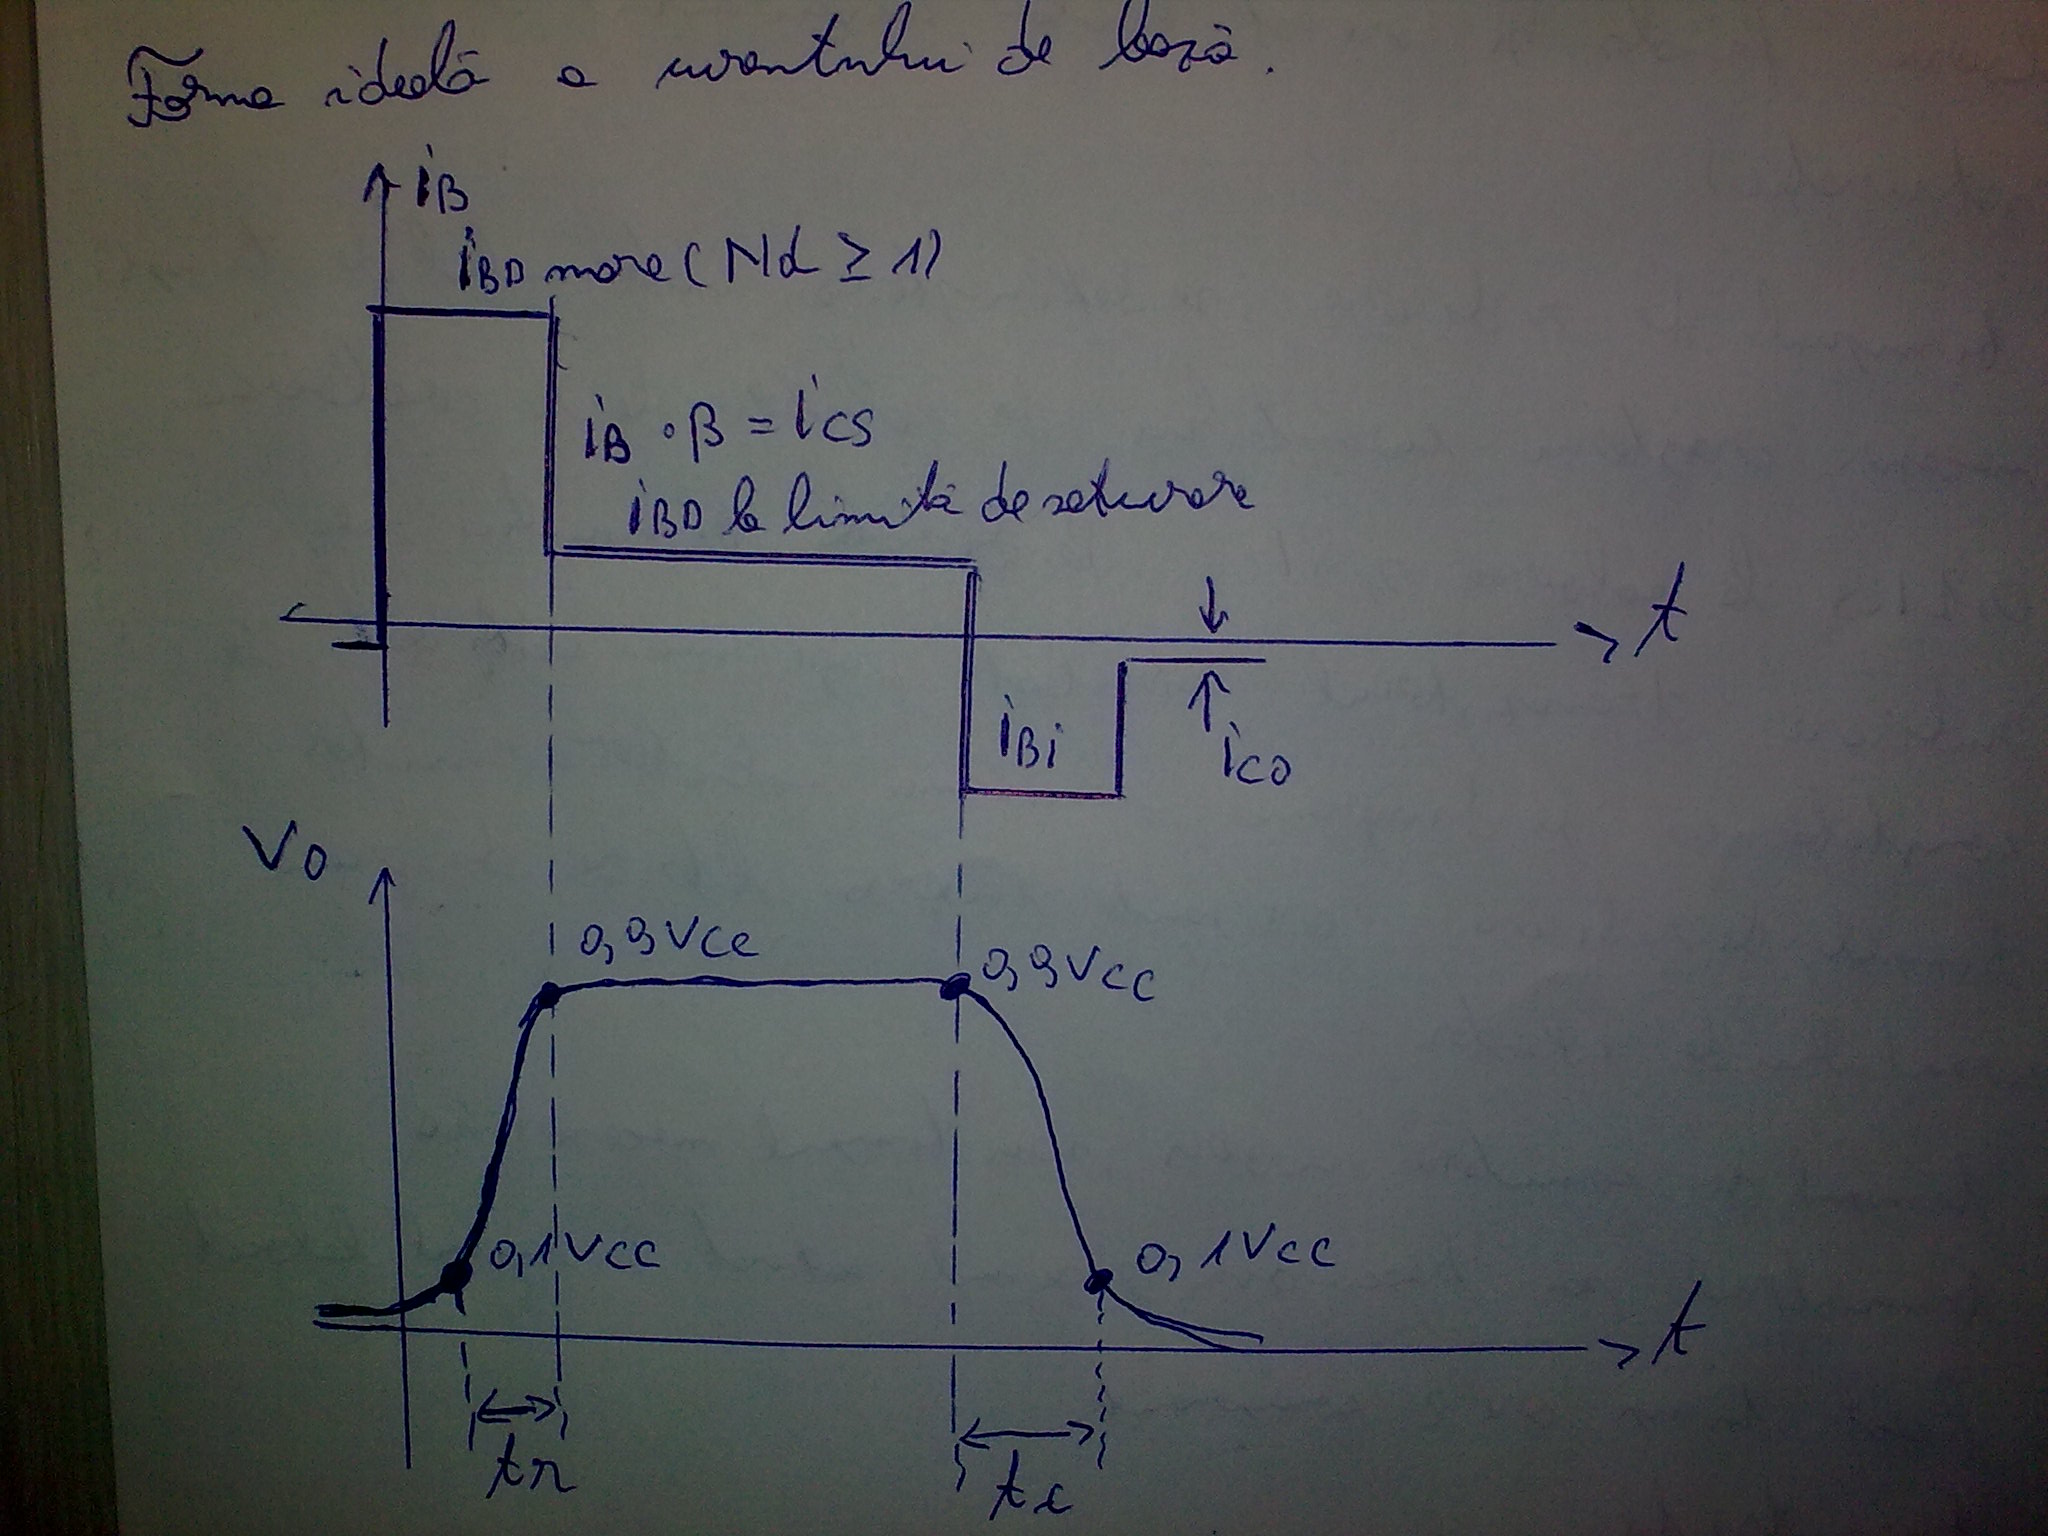 Forma ideală a curentului de bază.
iB
iBD mare (Nd ≥ 1)
iB · β = iCS
iBD la limită de saturare
t
iBi
iCO
VO
0,9VCC
0,9VCC
0,1VCC
0,1VCC
t
tr
tc